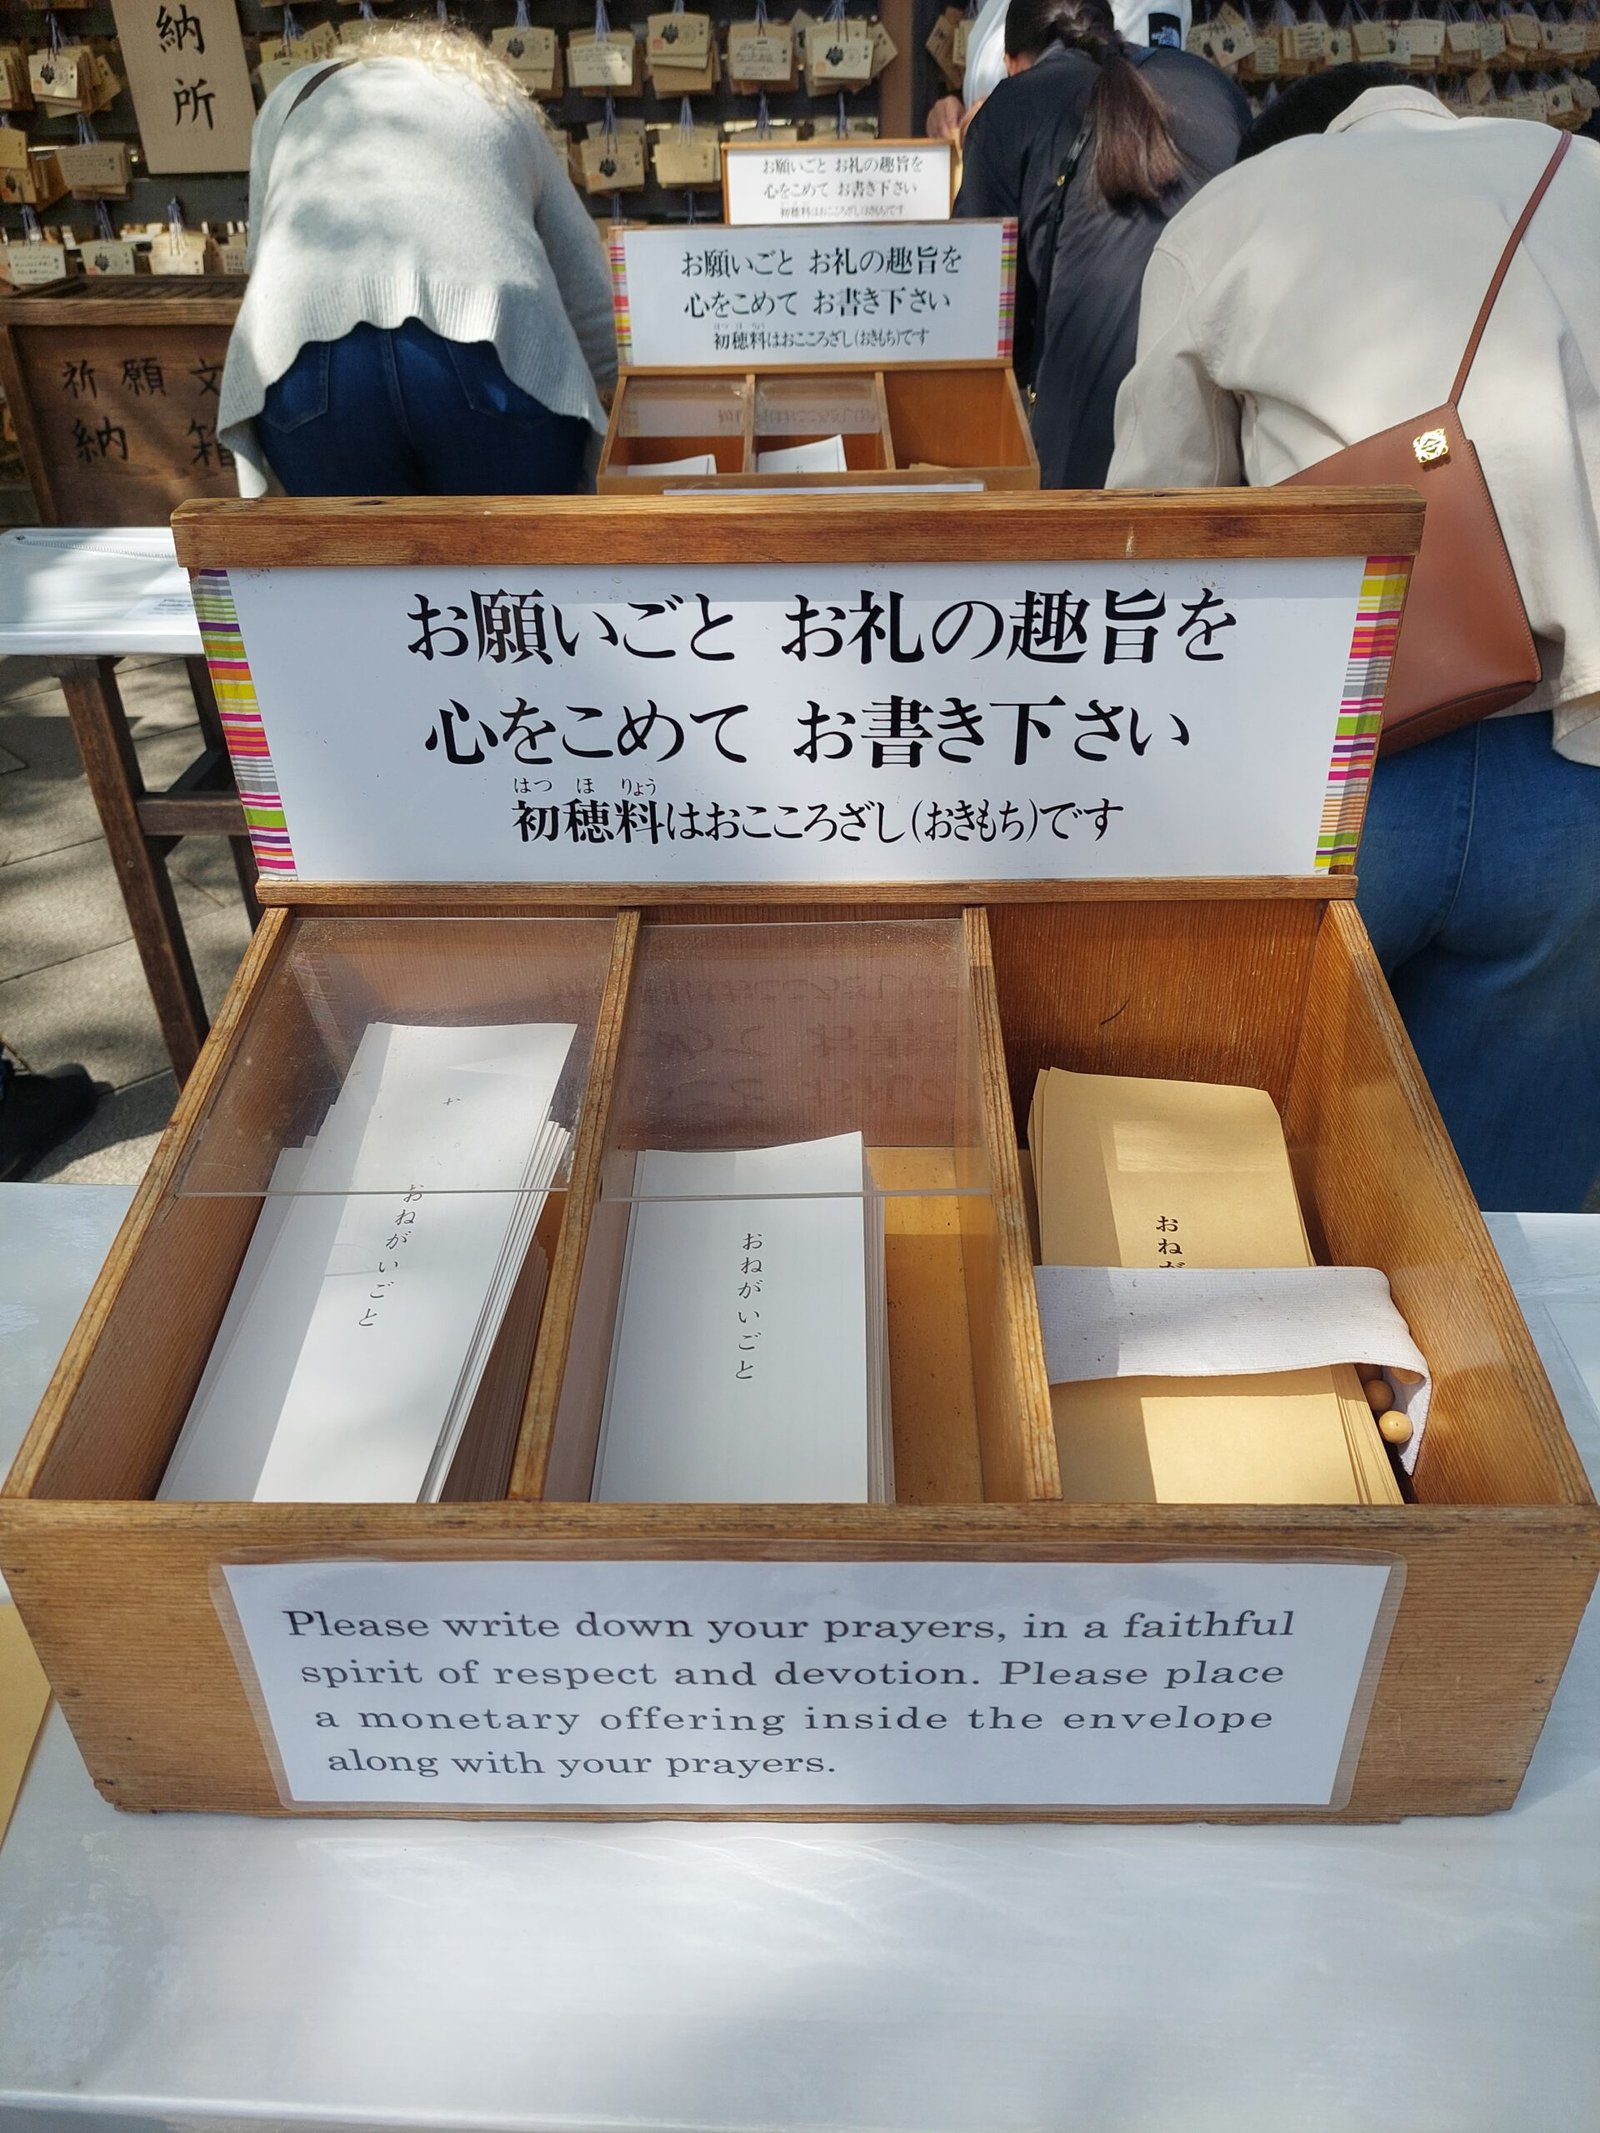 納所
お願いごと お礼の趣旨を
心をこめて お書き下さい
初穂料はおこころざし(おきもち)です
お願いごと お礼の趣旨を
心をこめて お書き下さい
はつ ほ りょう
初穂料はおこころざし(おきもち)です
祈願文
納 箱
お願いごと お礼の趣旨を
心をこめて お書き下さい
はつ ほ りょう
初穂料はおこころざし(おきもち)です
お
おねがいごと
おねがいごと
おねが
Please write down your prayers, in a faithful
spirit of respect and devotion. Please place
a monetary offering inside the envelope
along with your prayers.